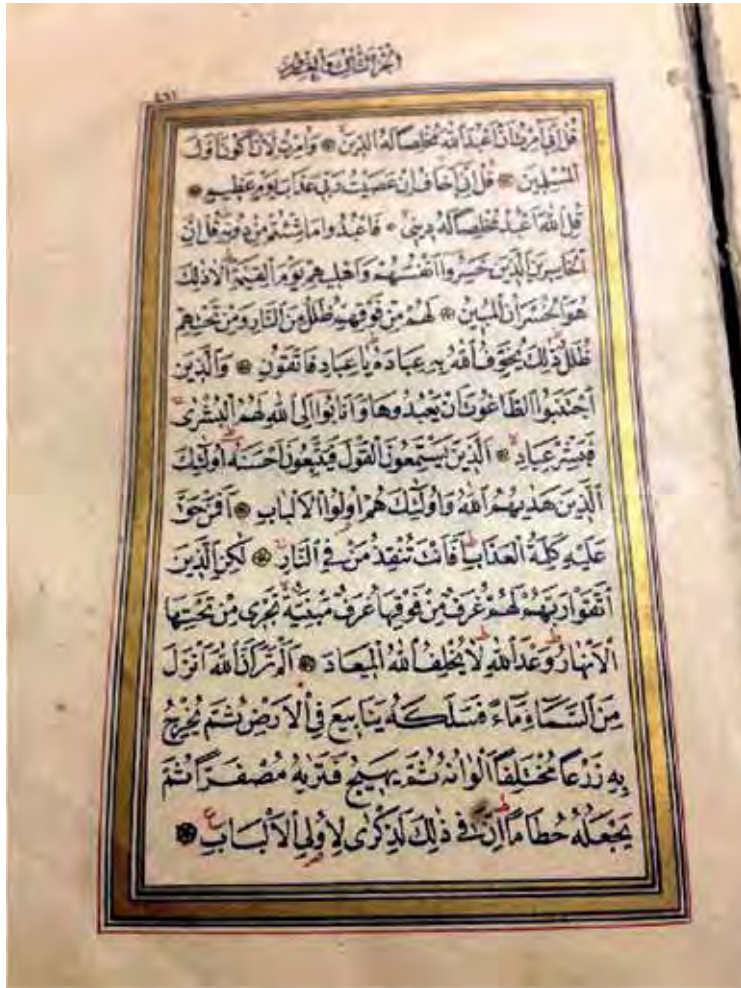 الجزء الثالث والعشرون
٤٦١
قُلْ اِنّ۪ٓي اُمِرْتُ اَنْ اَعْبُدَ اللّٰهَ مُخْلِصًا لَهُ الدّ۪ينَ وَاُمِرْتُ لِاَنْ اَكُونَ اَوَّلَ
الْمُسْلِم۪ينَ قُلْ اِنّ۪ٓي اَخَافُ اِنْ عَصَيْتُ رَبّ۪ي عَذَابَ يَوْمٍ عَظ۪يمٍ
قُلِ اللّٰهَ اَعْبُدُ مُخْلِصًا لَهُ د۪ين۪ي فَاعْبُدُوا مَا شِئْتُمْ مِنْ دُونِه۪ قُلْ اِنَّ
الْخَاسِر۪ينَ الَّذ۪ينَ خَسِرُٓوا اَنْفُسَهُمْ وَاَهْل۪يهِمْ يَوْمَ الْقِيٰمَةِ اَلَا ذٰلِكَ
هُوَ الْخُسْرَانُ الْمُب۪ينُ لَهُمْ مِنْ فَوْقِهِمْ ظُلَلٌ مِنَ النَّارِ وَمِنْ تَحْتِهِمْ
ظُلَلٌ ذٰلِكَ يُخَوِّفُ اللّٰهُ بِه۪ عِبَادَهُ يَا عِبَادِ فَاتَّقُونِ وَالَّذ۪ينَ
اجْتَنَبُوا الطَّاغُوتَ اَنْ يَعْبُدُوهَا وَاَنَابُٓوا اِلَى اللّٰهِ لَهُمُ الْبُشْرٰى
فَبَشِّرْ عِبَادِ اَلَّذ۪ينَ يَسْتَمِعُونَ الْقَوْلَ فَيَتَّبِعُونَ اَحْسَنَهُ اُولٰٓئِكَ
الَّذ۪ينَ هَدٰيهُمُ اللّٰهُ وَاُولٰٓئِكَ هُمْ اُولُوا الْاَلْبَابِ اَفَمَنْ حَقَّ
عَلَيْهِ كَلِمَةُ الْعَذَابِ اَفَاَنْتَ تُنْقِذُ مَنْ فِي النَّارِ لٰكِنِ الَّذ۪ينَ
اتَّقَوْا رَبَّهُمْ لَهُمْ غُرَفٌ مِنْ فَوْقِهَا غُرَفٌ مَبْنِيَّةٌ تَجْر۪ي مِنْ تَحْتِهَا
الْاَنْهَارُ وَعْدَ اللّٰهِ لَا يُخْلِفُ اللّٰهُ الْم۪يعَادَ اَلَمْ تَرَ اَنَّ اللّٰهَ اَنْزَلَ
مِنَ السَّمَٓاءِ مَٓاءً فَسَلَكَهُ يَنَاب۪يعَ فِي الْاَرْضِ ثُمَّ يُخْرِجُ
بِه۪ زَرْعًا مُخْتَلِفًا اَلْوَانُهُ ثُمَّ يَه۪يجُ فَتَرٰيهُ مُصْفَرًّا ثُمَّ
يَجْعَلُهُ حُطَامًا اِنَّ ف۪ي ذٰلِكَ لَذِكْرٰى لِاُولِي الْاَلْبَابِ